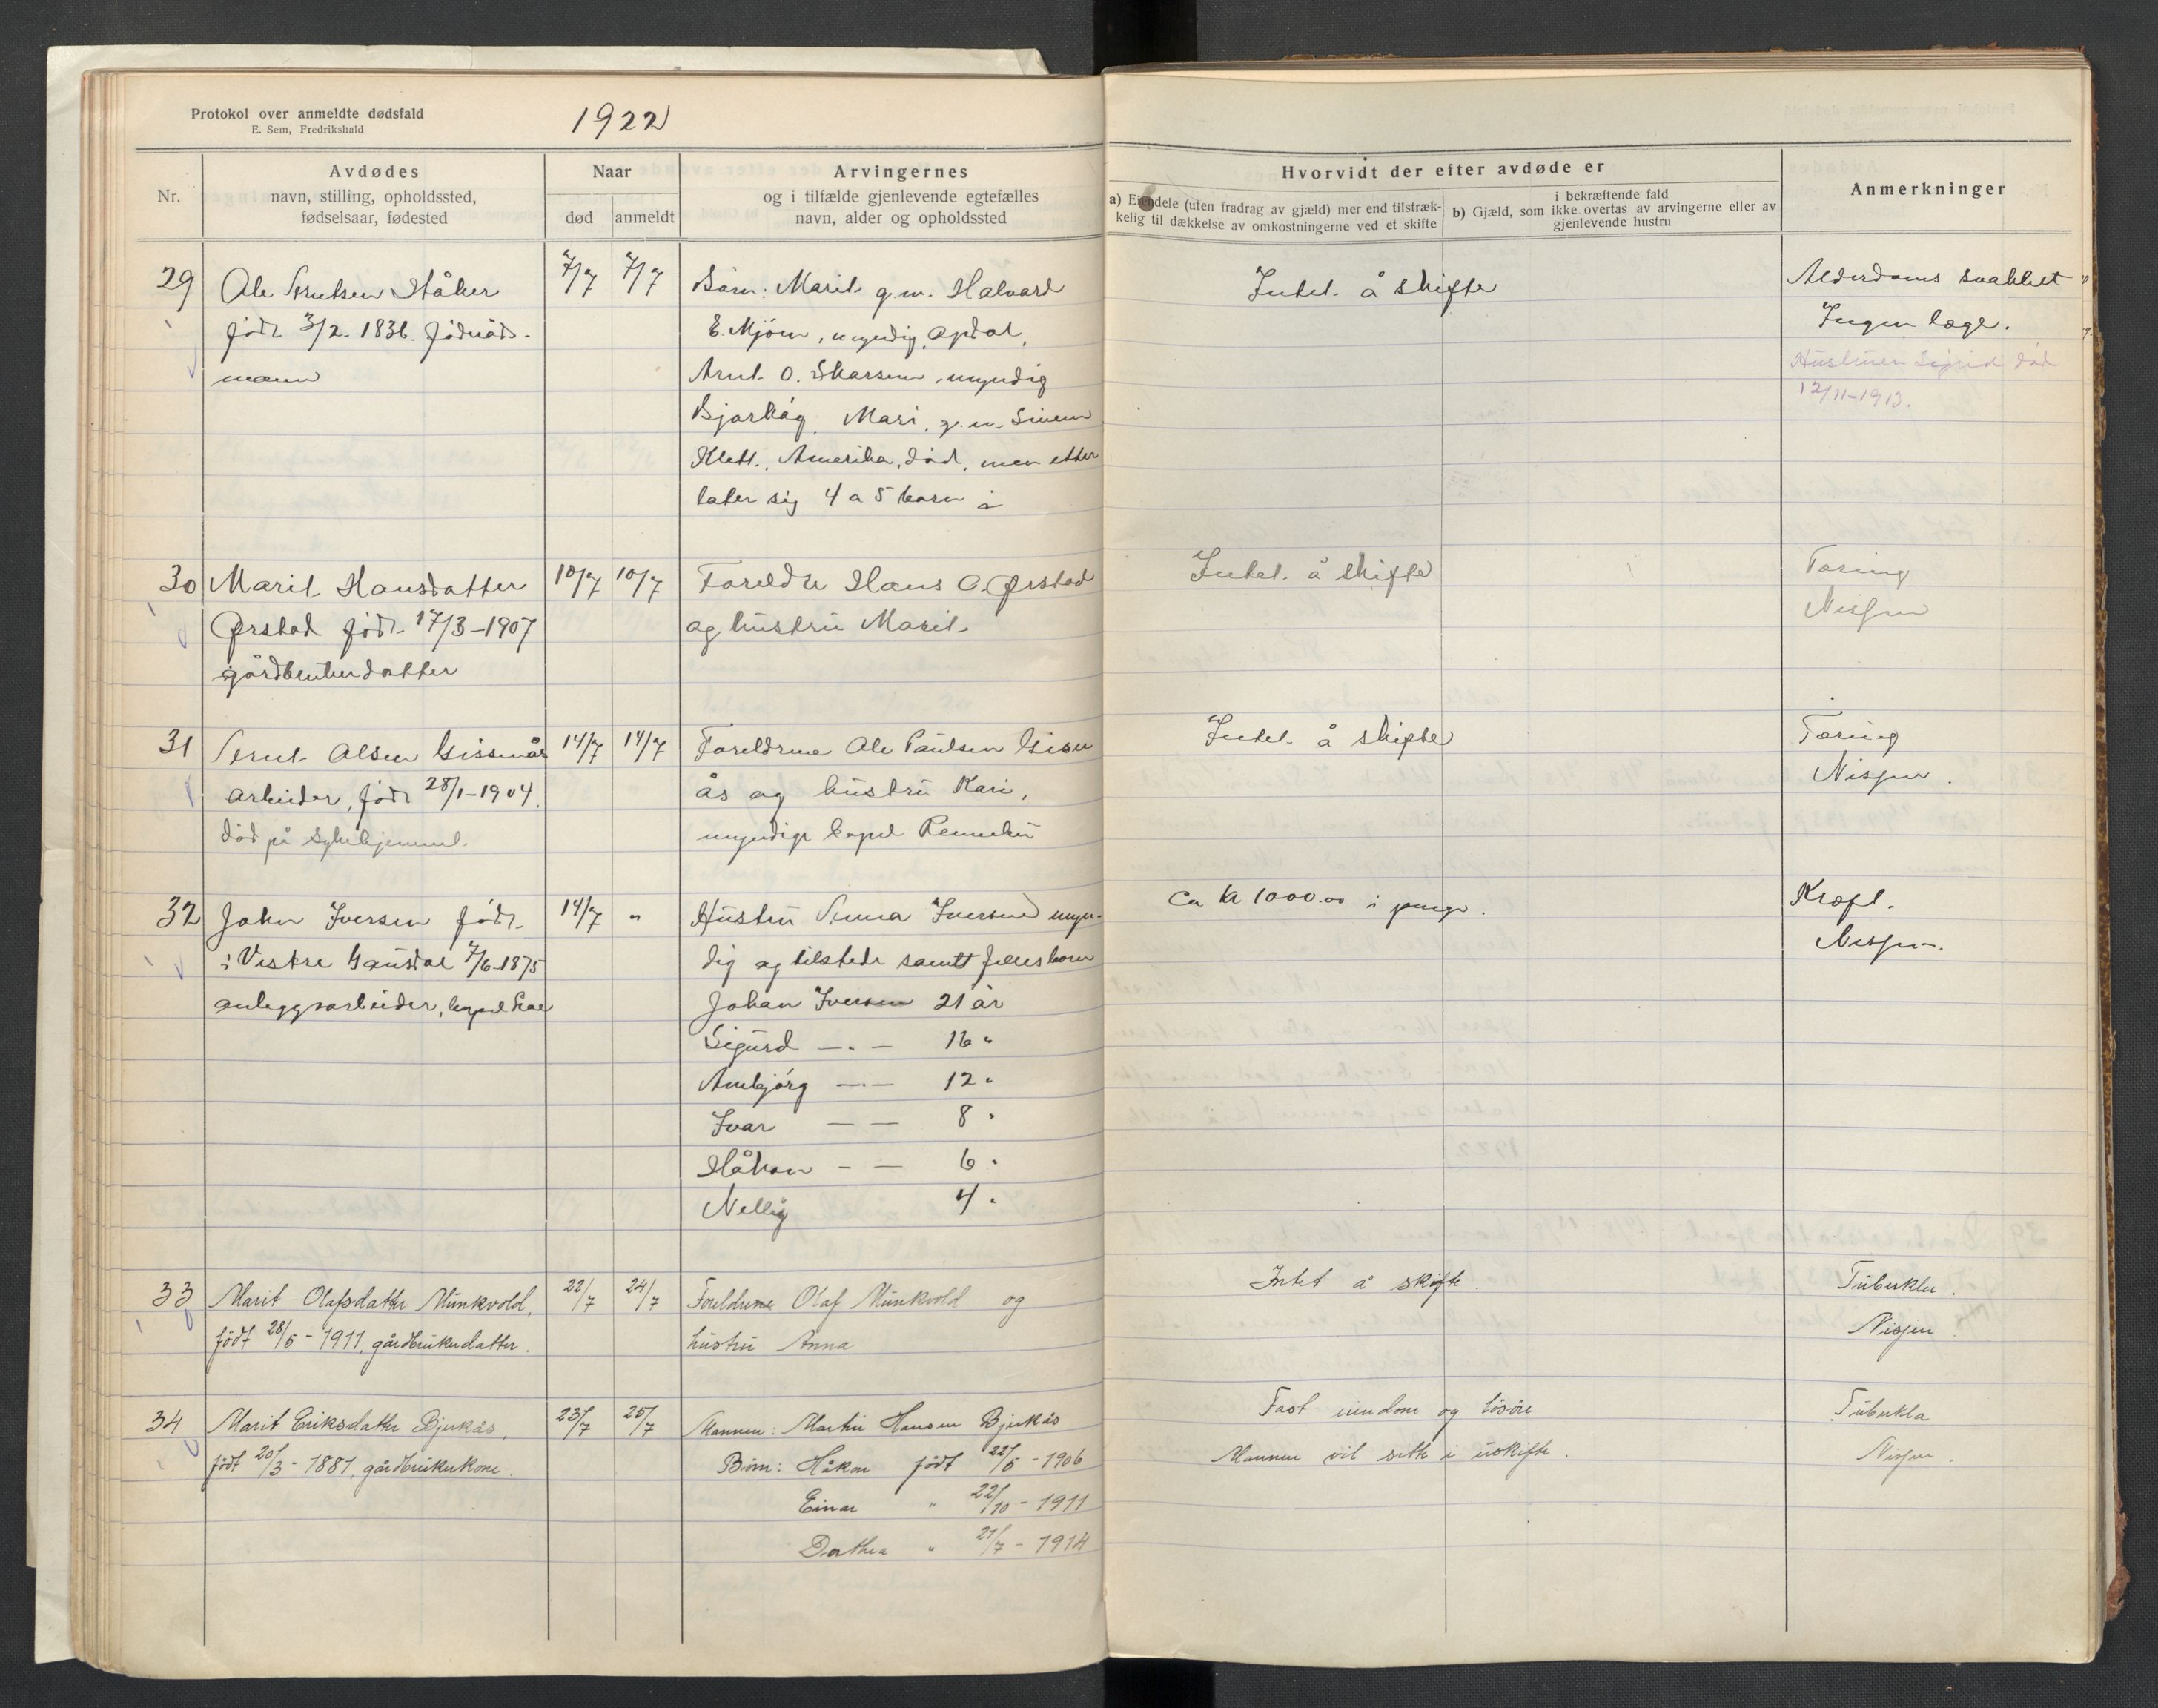 Protokol over anmeldte dødsfald
E. Sem, Fredrikshald
1922
Nr.
Avdødes
navn, stilling, opholdssted,
fødselsaar, fødested
Naar
død
anmeldt
Arvingernes
og i tilfælde gjenlevende egtefælles
navn, alder og opholdssted
Hvorvidt der efter avdøde er
a) Eiendele (uten fradrag av gjæld) mer end tilstræk-
kelig til dækkelse av omkostningerne ved et skifte
i bekræftende fald
b) Gjæld, som ikke overtas av arvingerne eller av
gjenlevende hustru
Anmerkninger
29
Ole Arntsen Håker
født 3/2. 1836. föderåds-
mann
7/7
7/7
Børn: Marit g.m. Halvard
E. Mjöen, myndig, Opdal,
Arnt O. Skarsem, myndig
Mari, g.m. Simen
Klett, Amerika, död, men etter
later sig 4 a 5 born
Intet å skifte
Alderdoms svakhet
Ingen læge.
Hustruen Sigrid död
12/11-1913.
30
Marit Hansdatter
Ørstad född 17/3-1907
gårdbrukerdatter
10/7
10/7
Foreldre Hans O. Ørstad
og hustru Marit
Intet å skifte
Tæring
Nissen
31
Arnt Olsen Gissnås
arbeider, född 28/1-1904.
död på sykehjemmet.
14/7
14/7
Foreldrene Ole Paulsen Gisn
ås og hustru Kari,
myndige bopel Rennebu
Intet å skifte
Tæring
Nissen.
32
John Iversen född
i Vestre Gausdal 7/6-1875
anleggsarbeider, bopel
14/7
"
Hustru Anna Iversen myn-
dig og tilstede samtt fellesborn
Johan Iversen 21 år
Sigurd -"- 16 "
Arnbjörg -"- 12 "
Ivar - - 8 "
Håkon - - 6 "
Nelly 4 "
Ca kr 1000.00 i penge.
Kræft.
Nissen.
33
Marit Olafsdatter Munkvold,
född 28/5-1911, gårdbrukerdatter.
22/7
24/7
Foreldrene Olaf Munkvold og
hustru Anna
Intet å skifte.
Tuberklu.
Nissen.
34
Marit Eriksdatter Bjerkås,
född 20/3-1881, gårdbrukerkone.
23/7
25/7
Mannen: Martin Hansen Bjerkås
Börn: Håkon född 22/5-1906
Einar " 22/10-1911
Dorthea " 21/7-1914
Fast eiendom og lösöre
Mannen vil sitte i uskifte.
Tuberkla
Nissen.